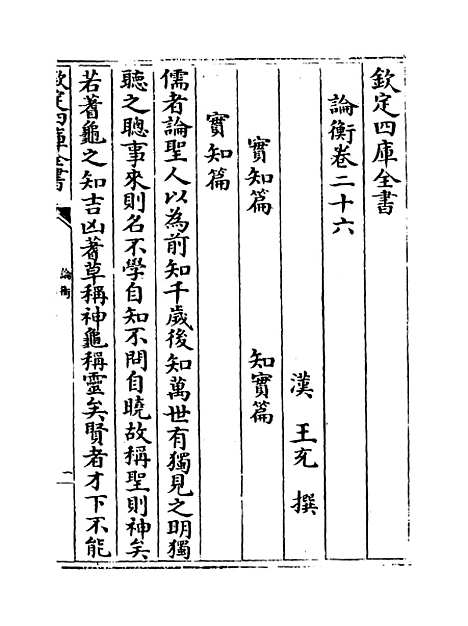 欽定四庫全書
論衡卷二十六
漢 王充 撰
實知篇 知實篇
實知篇
儒者論聖人以為前知千歲後知萬世有獨見之明獨
聽之聰事來則名不學自知不問自曉故稱聖則神矣
若蓍龜之知吉凶蓍草稱神龜稱靈矣賢者才下不能
欽定四庫全書
論衡